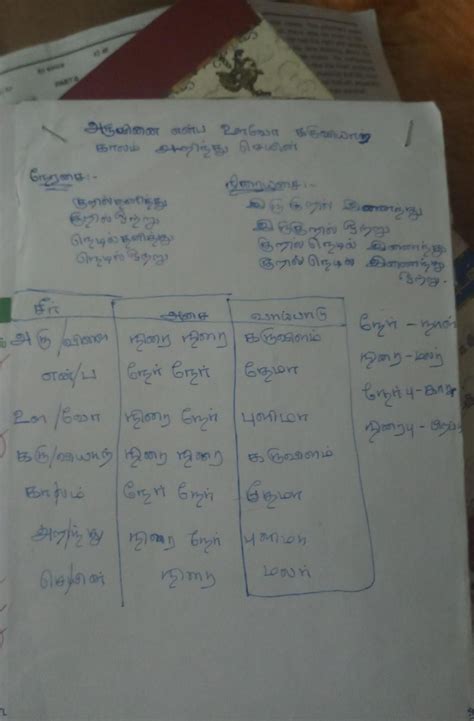 அருவினை என்ப உளவோ கருவியாற்
காலம் அறிந்து செயின்
நேரசை:-
நிரையசை:-
குறில் தனித்து
இரு குறில் இணைந்து
குறில் ஒற்று
இருகுறில் ஒற்று
நெடில் தனித்து
குறில் நெடில் இணைந்து
நெடில் ஒற்று
குறில் நெடில் இணைந்து
ஒற்று.
சீர் அசை வாய்பாடு
அரு/வினை நிரை நிரை கருவிளம்
நேர் - நாள்
என்/ப நேர் நேர் தேமா
நிரை - மலர்
உள/வோ நிரை நேர் புளிமா
நேர்பு - காசு
கரு/வியாற் நிரை நிரை கருவிளம்
நிரைபு -
காலம் நேர் நேர் தேமா
அறி/ந்து நிரை நேர் புளிமா
நிரை மலர்